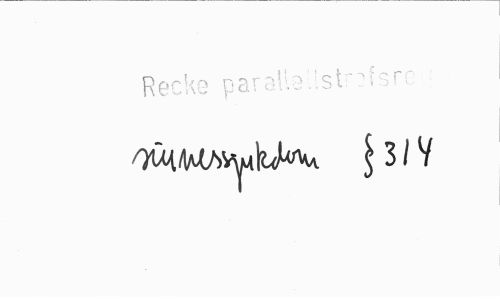 Recke parallellstrofsreg
sinnessjukdom § 314